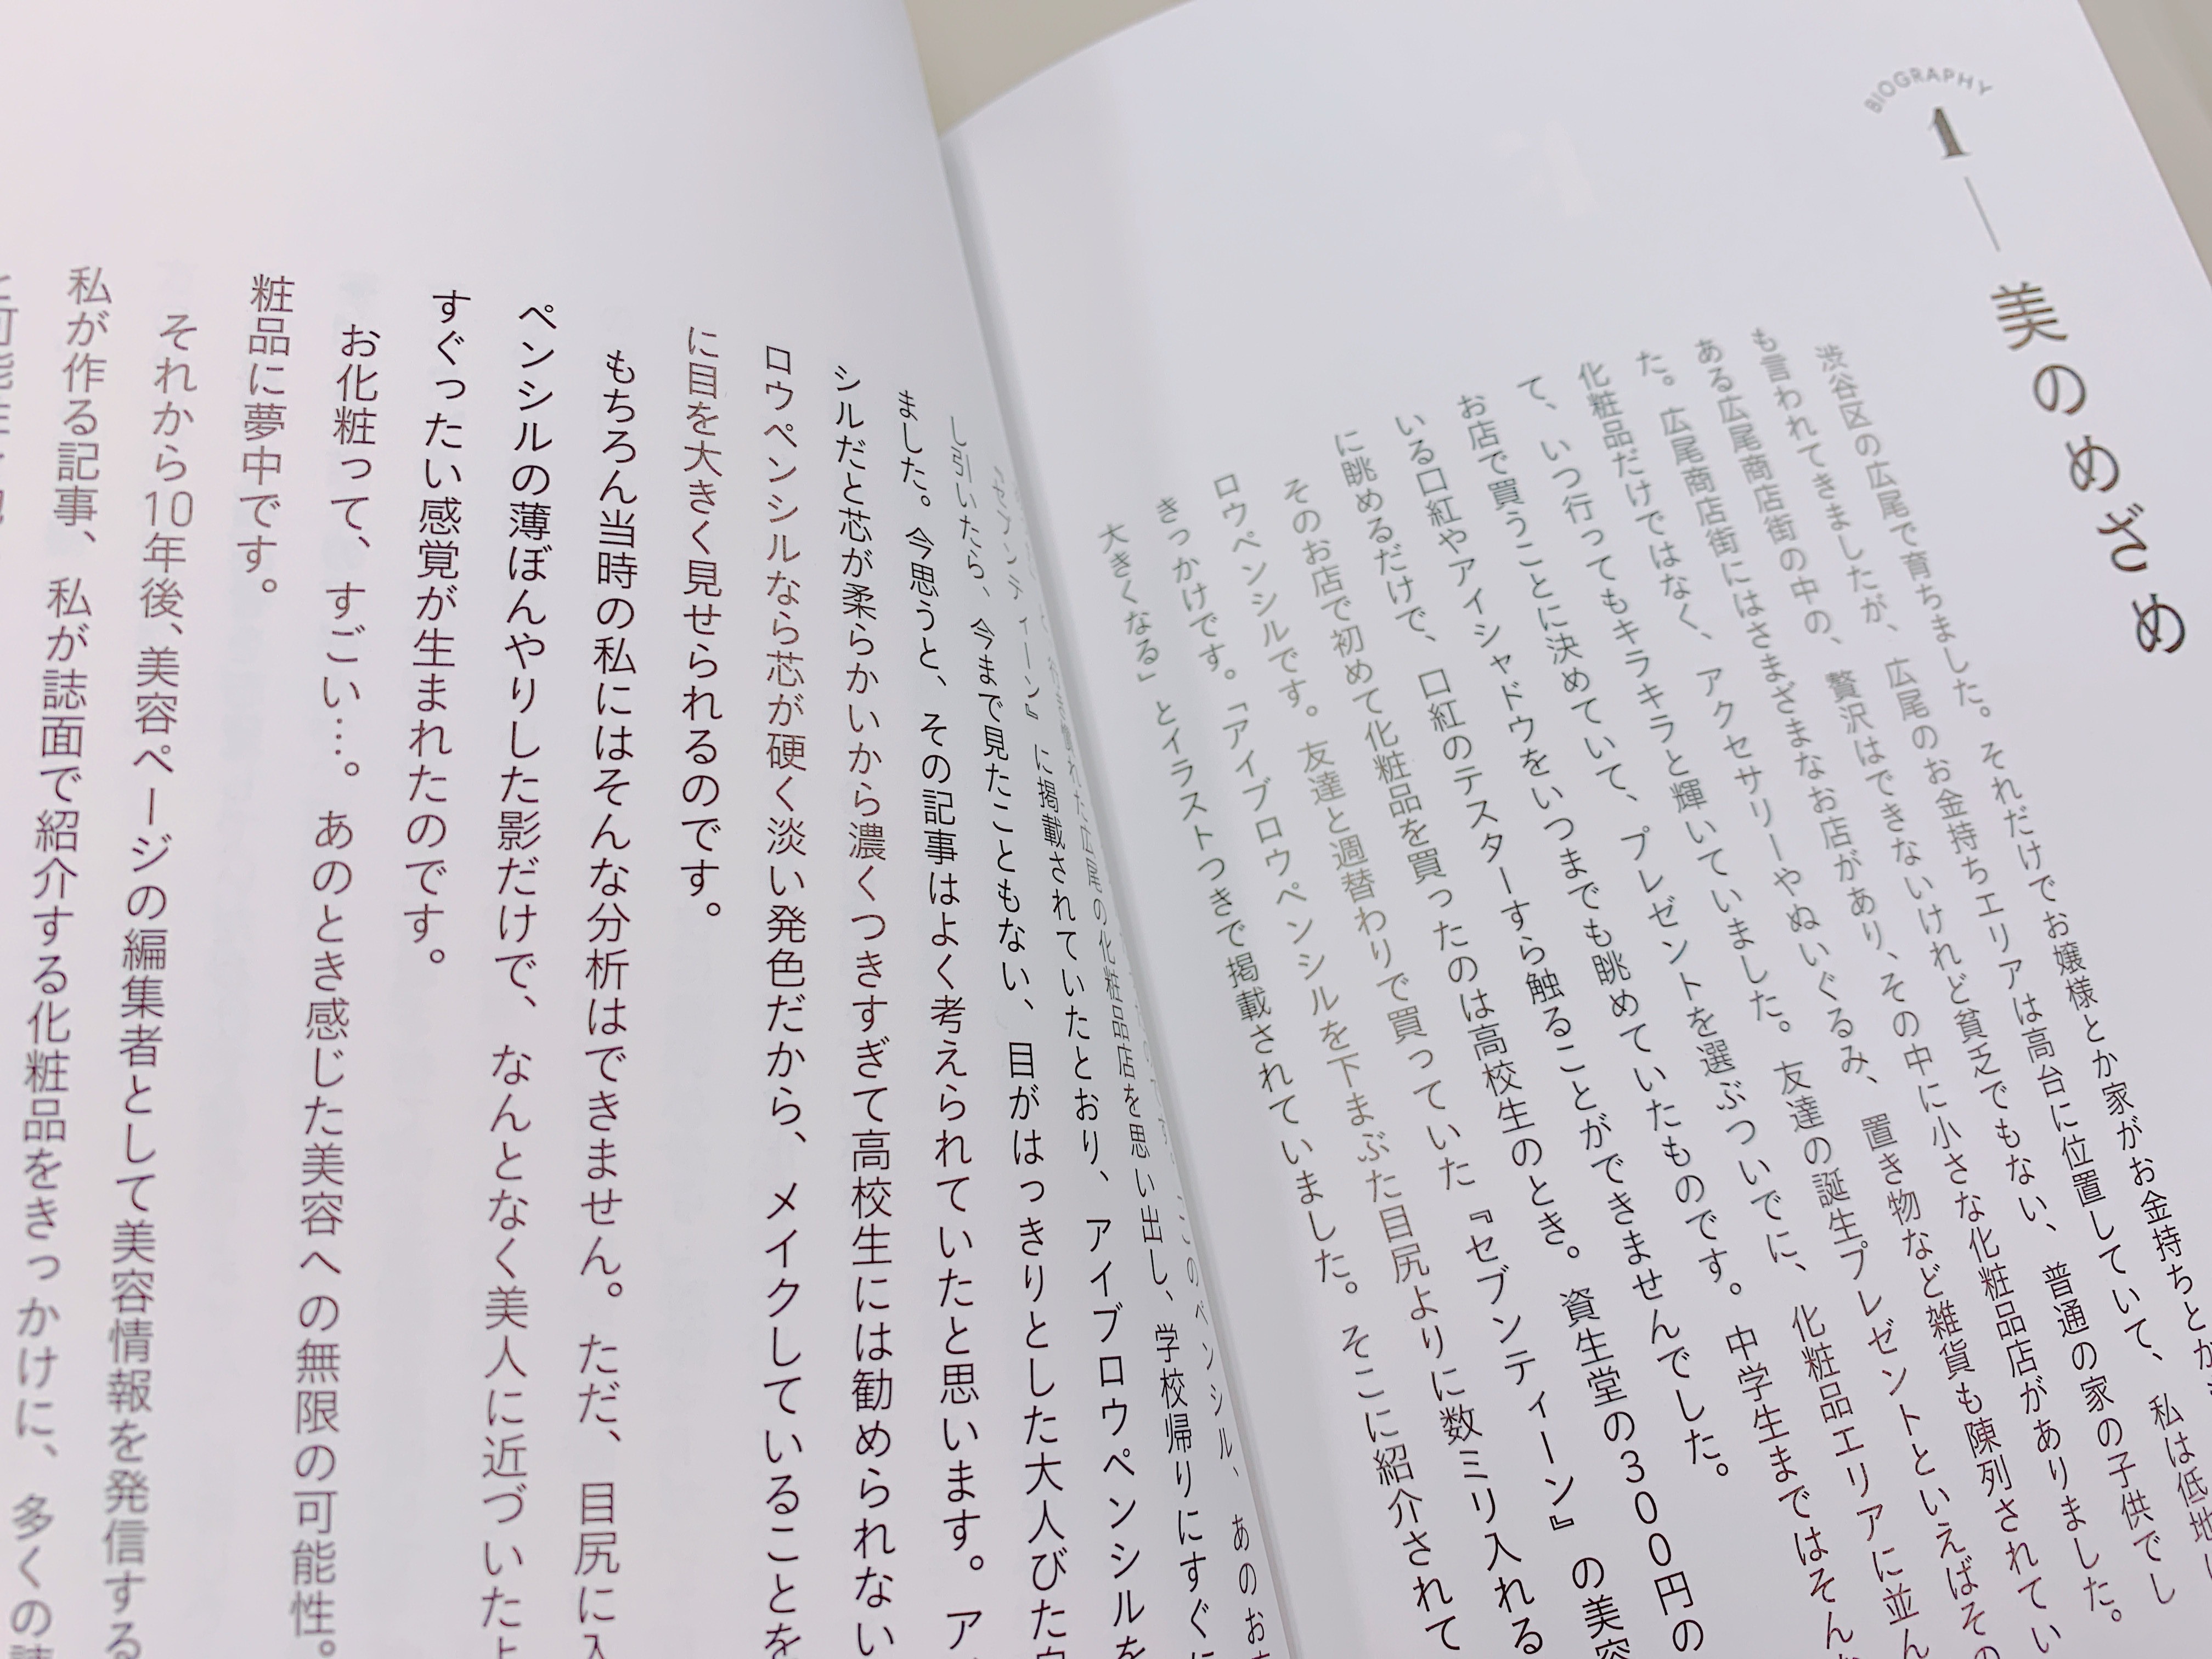 BIOGRAPHY
1
美のめざめ
渋谷区の広尾で育ちました。それだけでお嬢様とか家がお金持ちとか
も言われてきましたが、広尾のお金持ちエリアは高台に位置していて、私は低地
ある広尾商店街の中の、贅沢はできないけれど貧乏でもない、普通の家の子供でし
た。広尾商店街にはさまざまなお店があり、その中に小さな化粧品店がありました。
化粧品だけではなく、アクセサリーやぬいぐるみ、置き物など雑貨も陳列されてい
て、いつ行ってもキラキラと輝いていました。友達の誕生プレゼントといえばその
お店で買うことに決めていて、プレゼントを選ぶついでに、化粧品エリアに並ん
いる口紅やアイシャドウをいつまでも眺めていたものです。中学生まではそんな
に眺めるだけで、口紅のテスターすら触ることができませんでした。
そのお店で初めて化粧品を買ったのは高校生のとき。資生堂の300円の
ロウペンシルです。友達と週替わりで買っていた『セブンティーン』の美容
きっかけです。「アイブロウペンシルを下まぶた目尻よりに数ミリ入れる
大きくなる」とイラストつきで掲載されていました。そこに紹介されて
このペンシル、あのお
の化粧品店を思い出し、学校帰りにすぐに
『セブンティーン』に掲載されていたとおり、アイブロウペンシルを
し引いたら、今まで見たこともない、目がはっきりとした大人びた
ました。今思うと、その記事はよく考えられていたと思います。ア
シルだと芯が柔らかいから濃くつきすぎて高校生には勧められない
ロウペンシルなら芯が硬く淡い発色だから、メイクしていることを
に目を大きく見せられるのです。
もちろん当時の私にはそんな分析はできません。ただ、目尻に入
ペンシルの薄ぼんやりした影だけで、なんとなく美人に近づいたよ
すぐったい感覚が生まれたのです。
お化粧って、すごい…。あのとき感じた美容への無限の可能性。
粧品に夢中です。
それから10年後、美容ページの編集者として美容情報を発信する
私が作る記事、私が誌面で紹介する化粧品をきっかけに、多くの